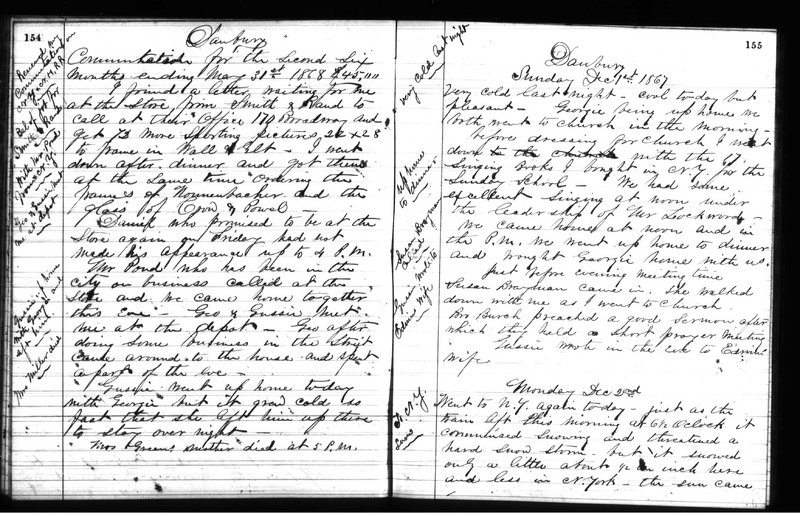 154
Danbury
Commutation for the Second Six
Months ending May 31st 1868 $45.00
I found a letter waiting for me
at the Store from Smith & Rand to
call at their Office 170 Broadway and
get 13 more Sporting pictures 22 x 28
to frame in Walt & Gilt - I went
down after dinner and got them
at the same time ordering the
frames of and the
glass of &
who promised to be at the
Store again on Friday had not
made his appearance up to 4 P.M.
Mr Pond who has been in the
city on business called at the
Store and we came home together
this eve - Geo & Gussie met
me at the depot - Geo after
doing some business in the Street
came around to the house and spent
a part of the eve -
Gussie went up home today
with Georgie but it grew cold so
fast that she left him up there
to stay over night -
Mrs Greens mother died at 5 P.M.
Received my
Commutation on
Smith & Rand
With Mr Pond
from N.Y.
Geo & Gussie met
me at depot
Gussie up home
with Georgie and
left him
Mrs died
155
Danbury
Sunday Dec 1st 1867
Very cold last night - cool to-day but
pleasant - Georgie being up home we
both went to church in the morning -
before dressing for church I went
down to the church with the 67
Singing Books I bought in N.Y. for the
Sunday School - We had some
excellent singing at noon under
the leadership of Mr Lockwood -
We came home at noon and in
the P.M. we went up home to dinner
and brought Georgie home with us.
Just before evening meeting time
Susan Bragman came in. She walked
down with me as I went to church
Bro. Burch preached a good sermon after
which they held a short prayer meeting
Gussie wrote in the eve to Edwins
Wife
Monday Dec 2nd
Went to N.Y. again to-day - just as the
train left this morning at 6½ Oclock it
commenced snowing and threatened a
hard snow storm but it snowed
only a little about ½ an inch here
and less in N. York - the sun came
very cold last night
up home
to dinner
Susan Bragman
called
Gussie writes to
Edwins Wife
To N.Y.
Snow